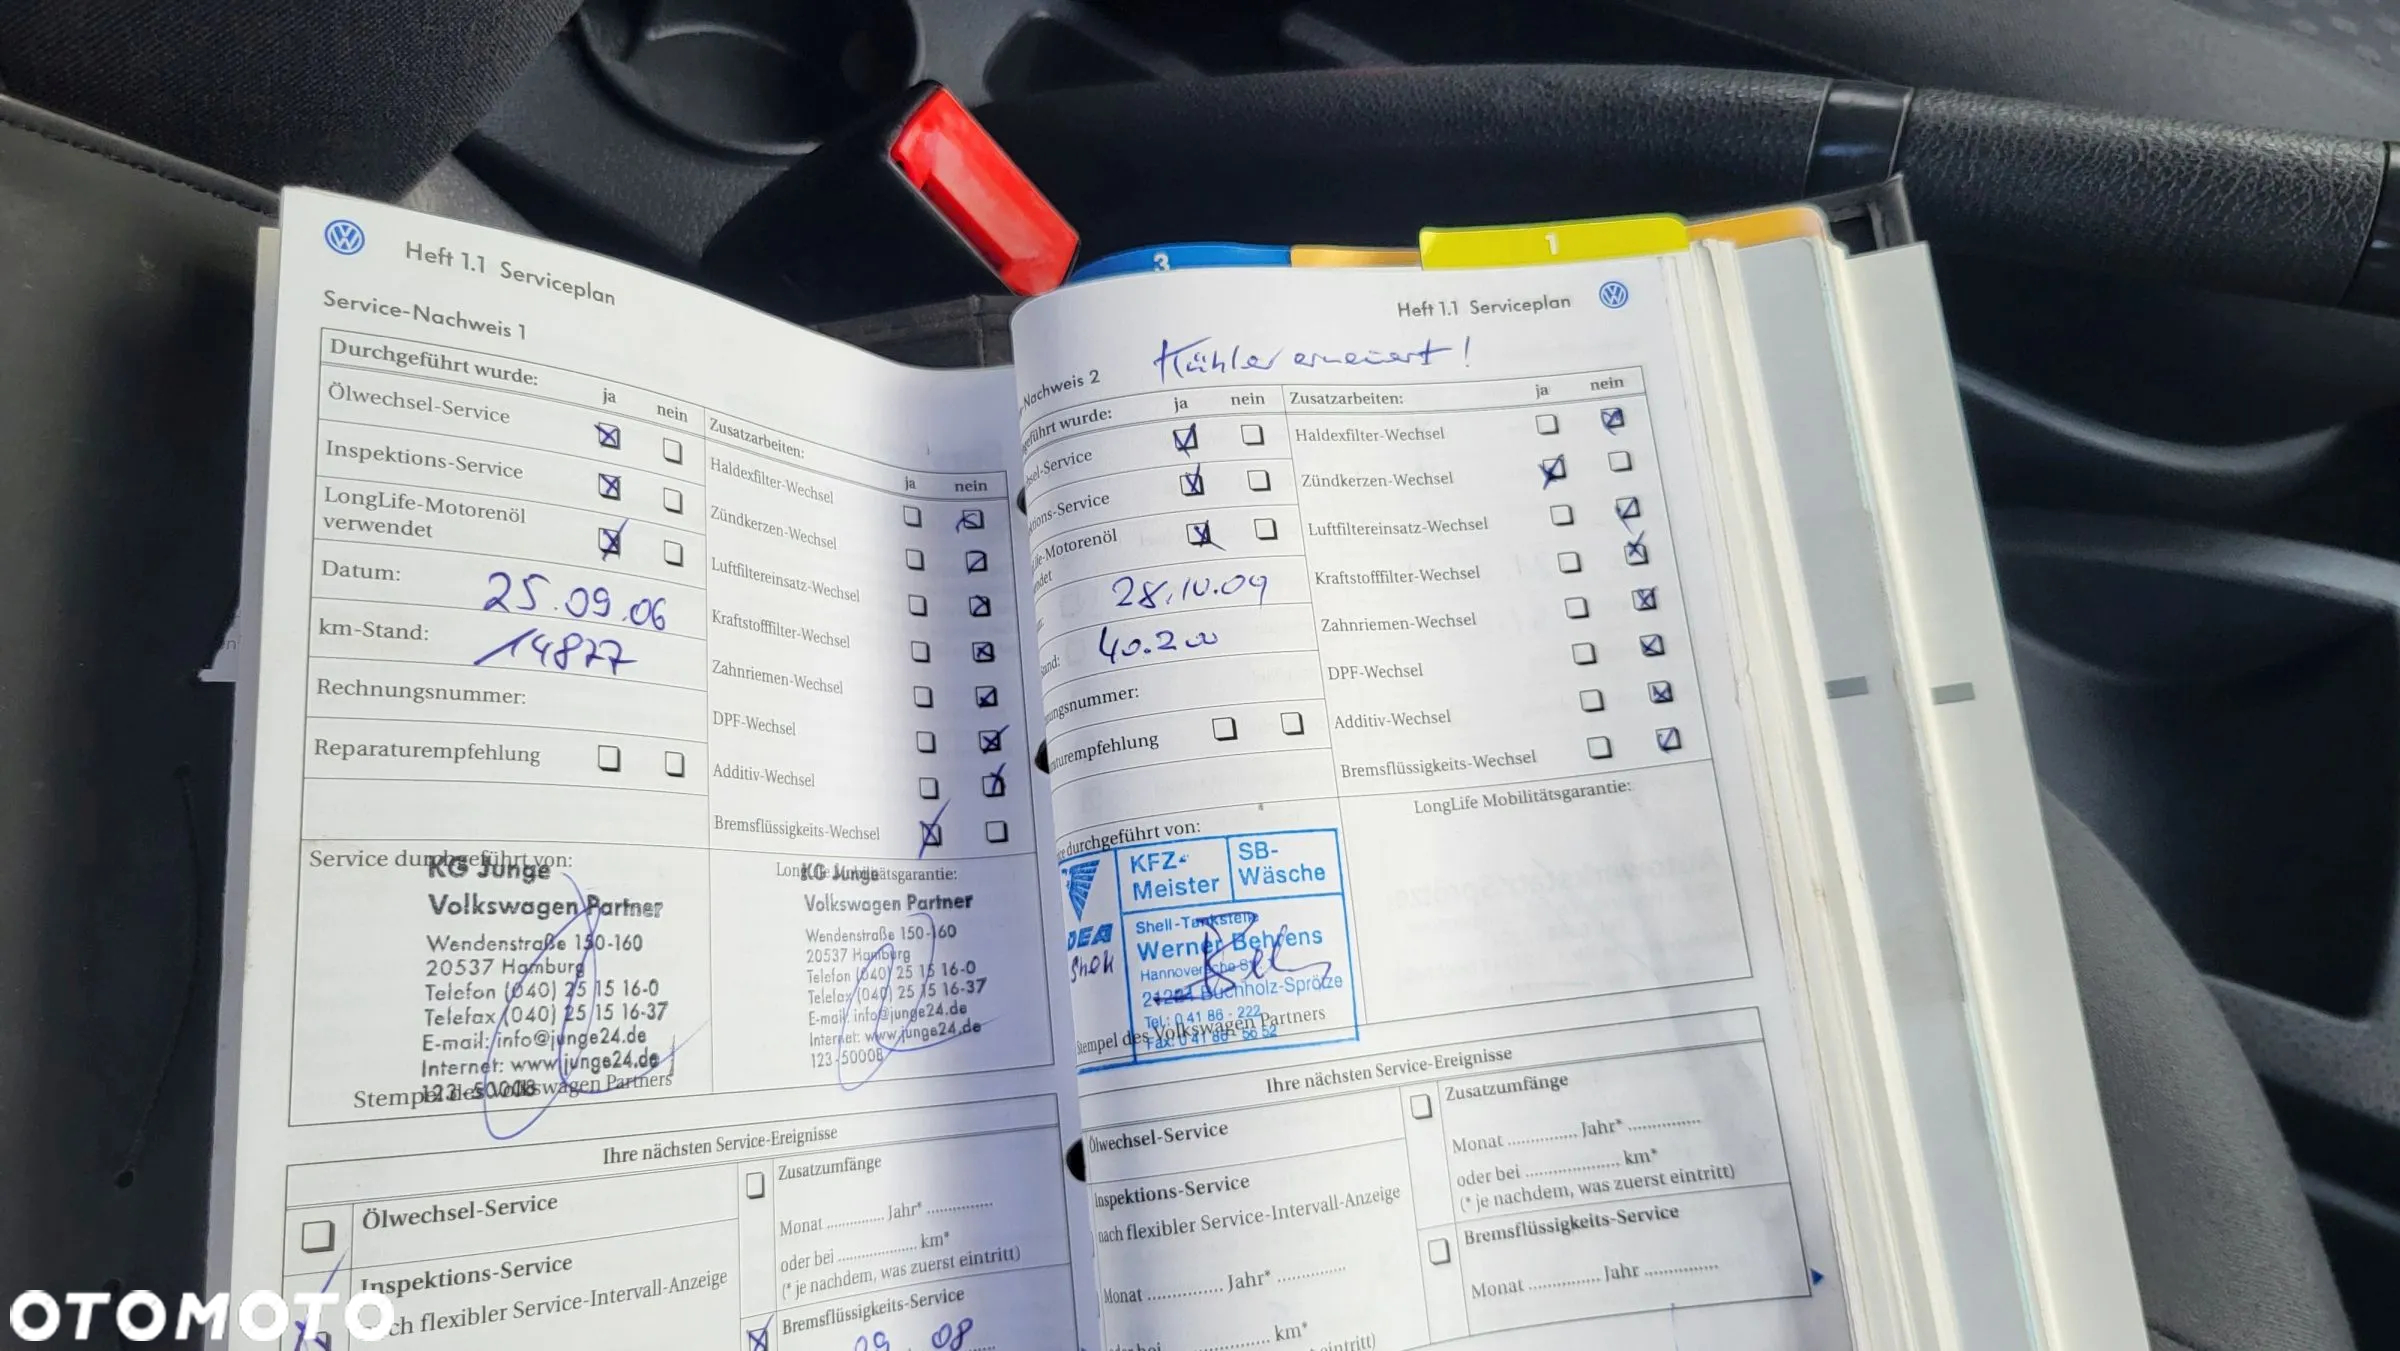 3
1
Heft 1.1 Serviceplan
Service-Nachweis 1
Durchgeführt wurde:
ja nein
Ölwechsel-Service
Inspektions-Service
LongLife-Motorenöl
verwendet
Datum: 25.09.06
km-Stand: 14877
Rechnungsnummer:
Reparaturempfehlung
Zusatzarbeiten:
ja nein
Haldexfilter-Wechsel
Zündkerzen-Wechsel
Luftfiltereinsatz-Wechsel
Kraftstofffilter-Wechsel
Zahnriemen-Wechsel
DPF-Wechsel
Additiv-Wechsel
Bremsflüssigkeits-Wechsel
Service durchgeführt von:
KG Junge
Volkswagen Partner
Wendenstraße 150-160
20537 Hamburg
Telefon (040) 25 15 16-0
Telefax (040) 25 15 16-37
E-mail: info@junge24.de
Internet: www.junge24.de
123-50008
Stempel des Volkswagen Partners
LongLife Mobilitätsgarantie:
KG Junge
Volkswagen Partner
Wendenstraße 150-160
20537 Hamburg
Telefon (040) 25 15 16-0
Telefax (040) 25 15 16-37
E-mail: info@junge24.de
Internet: www.junge24.de
123-50008
Ihre nächsten Service-Ereignisse
Ölwechsel-Service
Inspektions-Service
ch flexibler Service-Intervall-Anzeige
Zusatzumfänge
Monat ............... Jahr* ...............
oder bei .................... km*
(* je nachdem, was zuerst eintritt)
Bremsflüssigkeits-Service
09 08
Heft 1.1 Serviceplan
Kühler erneuert!
-Nachweis 2
geführt wurde:
ja nein
hsel-Service
tions-Service
ife-Motorenöl
ndet
28.10.09
tand: 40.200
nungsnummer:
aturempfehlung
Zusatzarbeiten:
ja nein
Haldexfilter-Wechsel
Zündkerzen-Wechsel
Luftfiltereinsatz-Wechsel
Kraftstofffilter-Wechsel
Zahnriemen-Wechsel
DPF-Wechsel
Additiv-Wechsel
Bremsflüssigkeits-Wechsel
ce durchgeführt von:
LongLife Mobilitätsgarantie:
KFZ-
Meister
SB-
Wäsche
DEA
Shell
Shell-Tankstelle
Werner Behrens
Hannoversche Str.
Buchholz-Sprötze
Tel.: 0 41 86 - 222
Stempel des Volkswagen Partners
Ihre nächsten Service-Ereignisse
Ölwechsel-Service
Inspektions-Service
nach flexibler Service-Intervall-Anzeige
Monat ............... Jahr* ...............
km*
eintritt)
Zusatzumfänge
Monat ............... Jahr* ...............
oder bei .................... km*
(* je nachdem, was zuerst eintritt)
Bremsflüssigkeits-Service
Monat ............... Jahr ...............
OTOMOTO